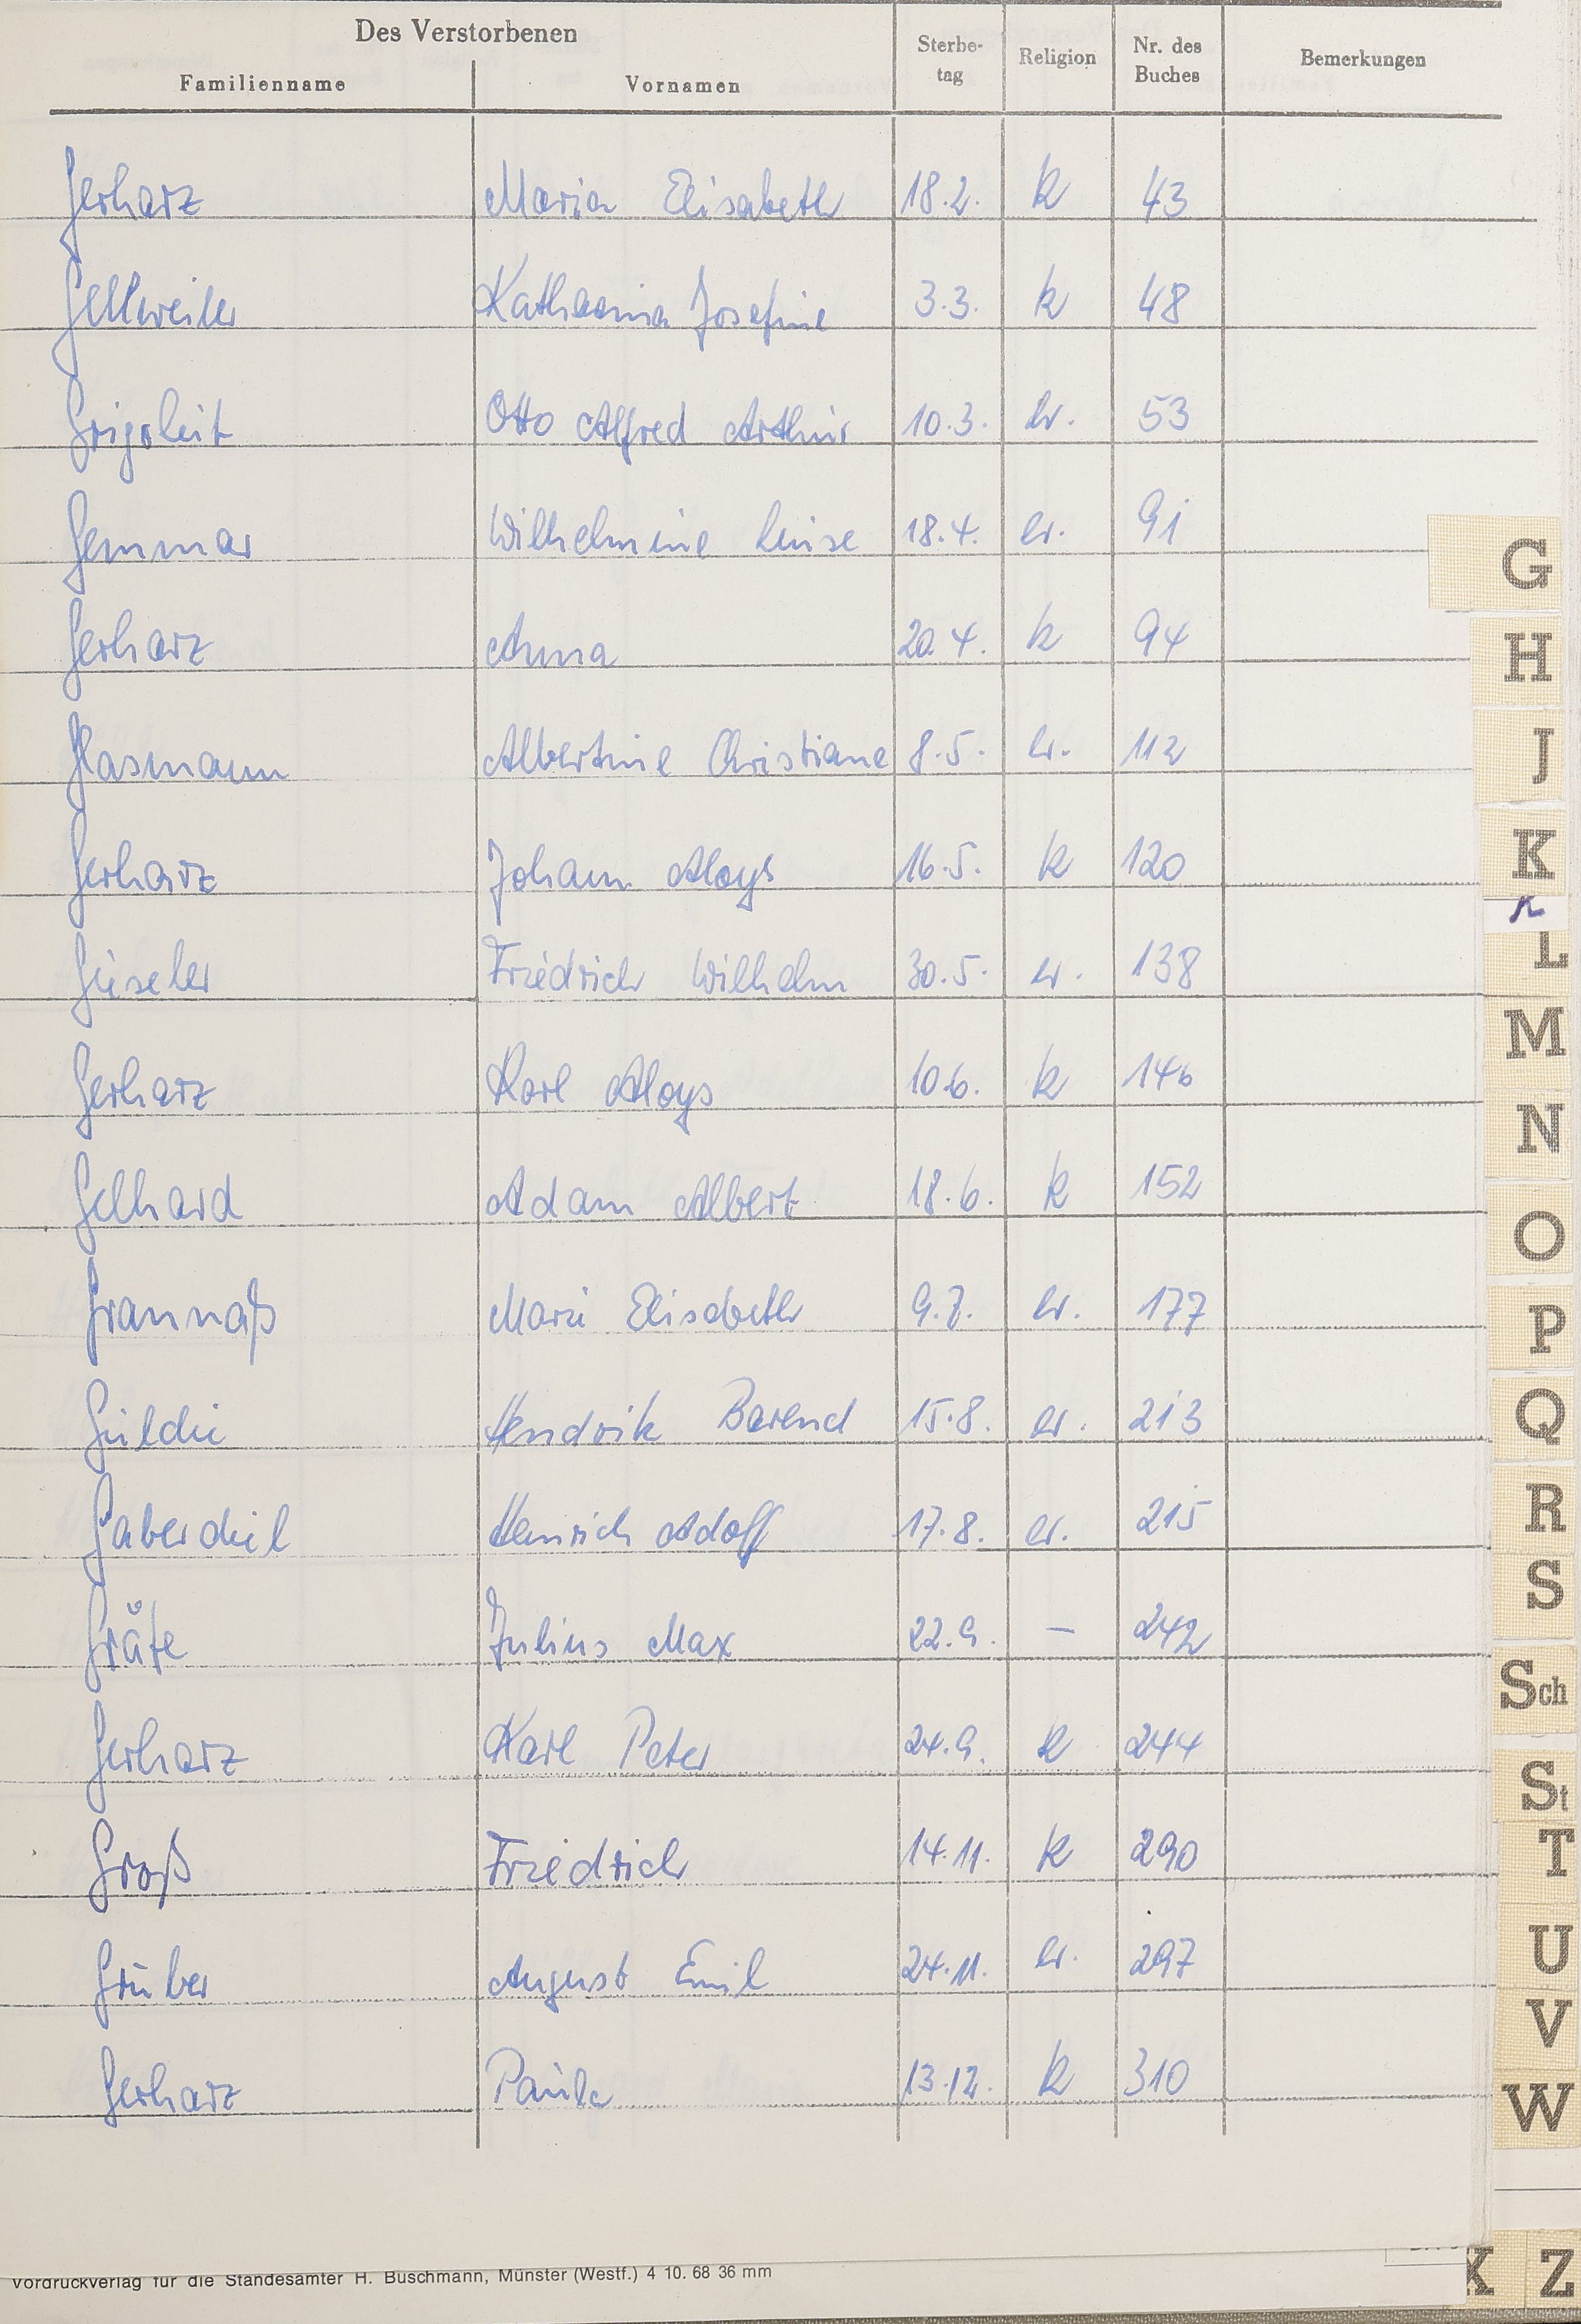 Des Verstorbenen
Familienname Vornamen Sterbe-tag Religion Nr. des Buches Bemerkungen
Gerharz Maria Elisabeth 18.2. k 43
Gellweiler Katharina Josefine 3.3. k 48
Grigoleit Otto Alfred Arthur 10.3. ev. 53
Gemmar Wilhelmine Luise 18.4. ev. 91
Gerharz Anna 20.4. k 94
Glasmann Albertine Christiane 8.5. ev. 112
Gerharz Johann Aloys 16.5. k 120
Güseler Friedrich Wilhelm 30.5. ev. 138
Gerharz Karl Aloys 10.6. k 146
Gelhard Adam Albert 18.6. k 152
Grannaß Marie Elisabeth 9.7. ev. 177
Güldie Hendrik Barend 15.8. ev. 213
Gaberdiel Heinrich Adolf 17.8. ev. 215
Gräfe Julius Max 22.9. — 242
Gerharz Karl Peter 24.9. k 244
Groß Friedrich 14.11. k 290
Grüber August Emil 24.11. ev. 297
Gerharz Paula 13.12. k 310
G
H
J
K
K
L
M
N
O
P
Q
R
S
Sch
St
T
U
V
W
Z
Vordruckverlag für die Standesämter H. Buschmann, Münster (Westf.) 4 10. 68 36 mm